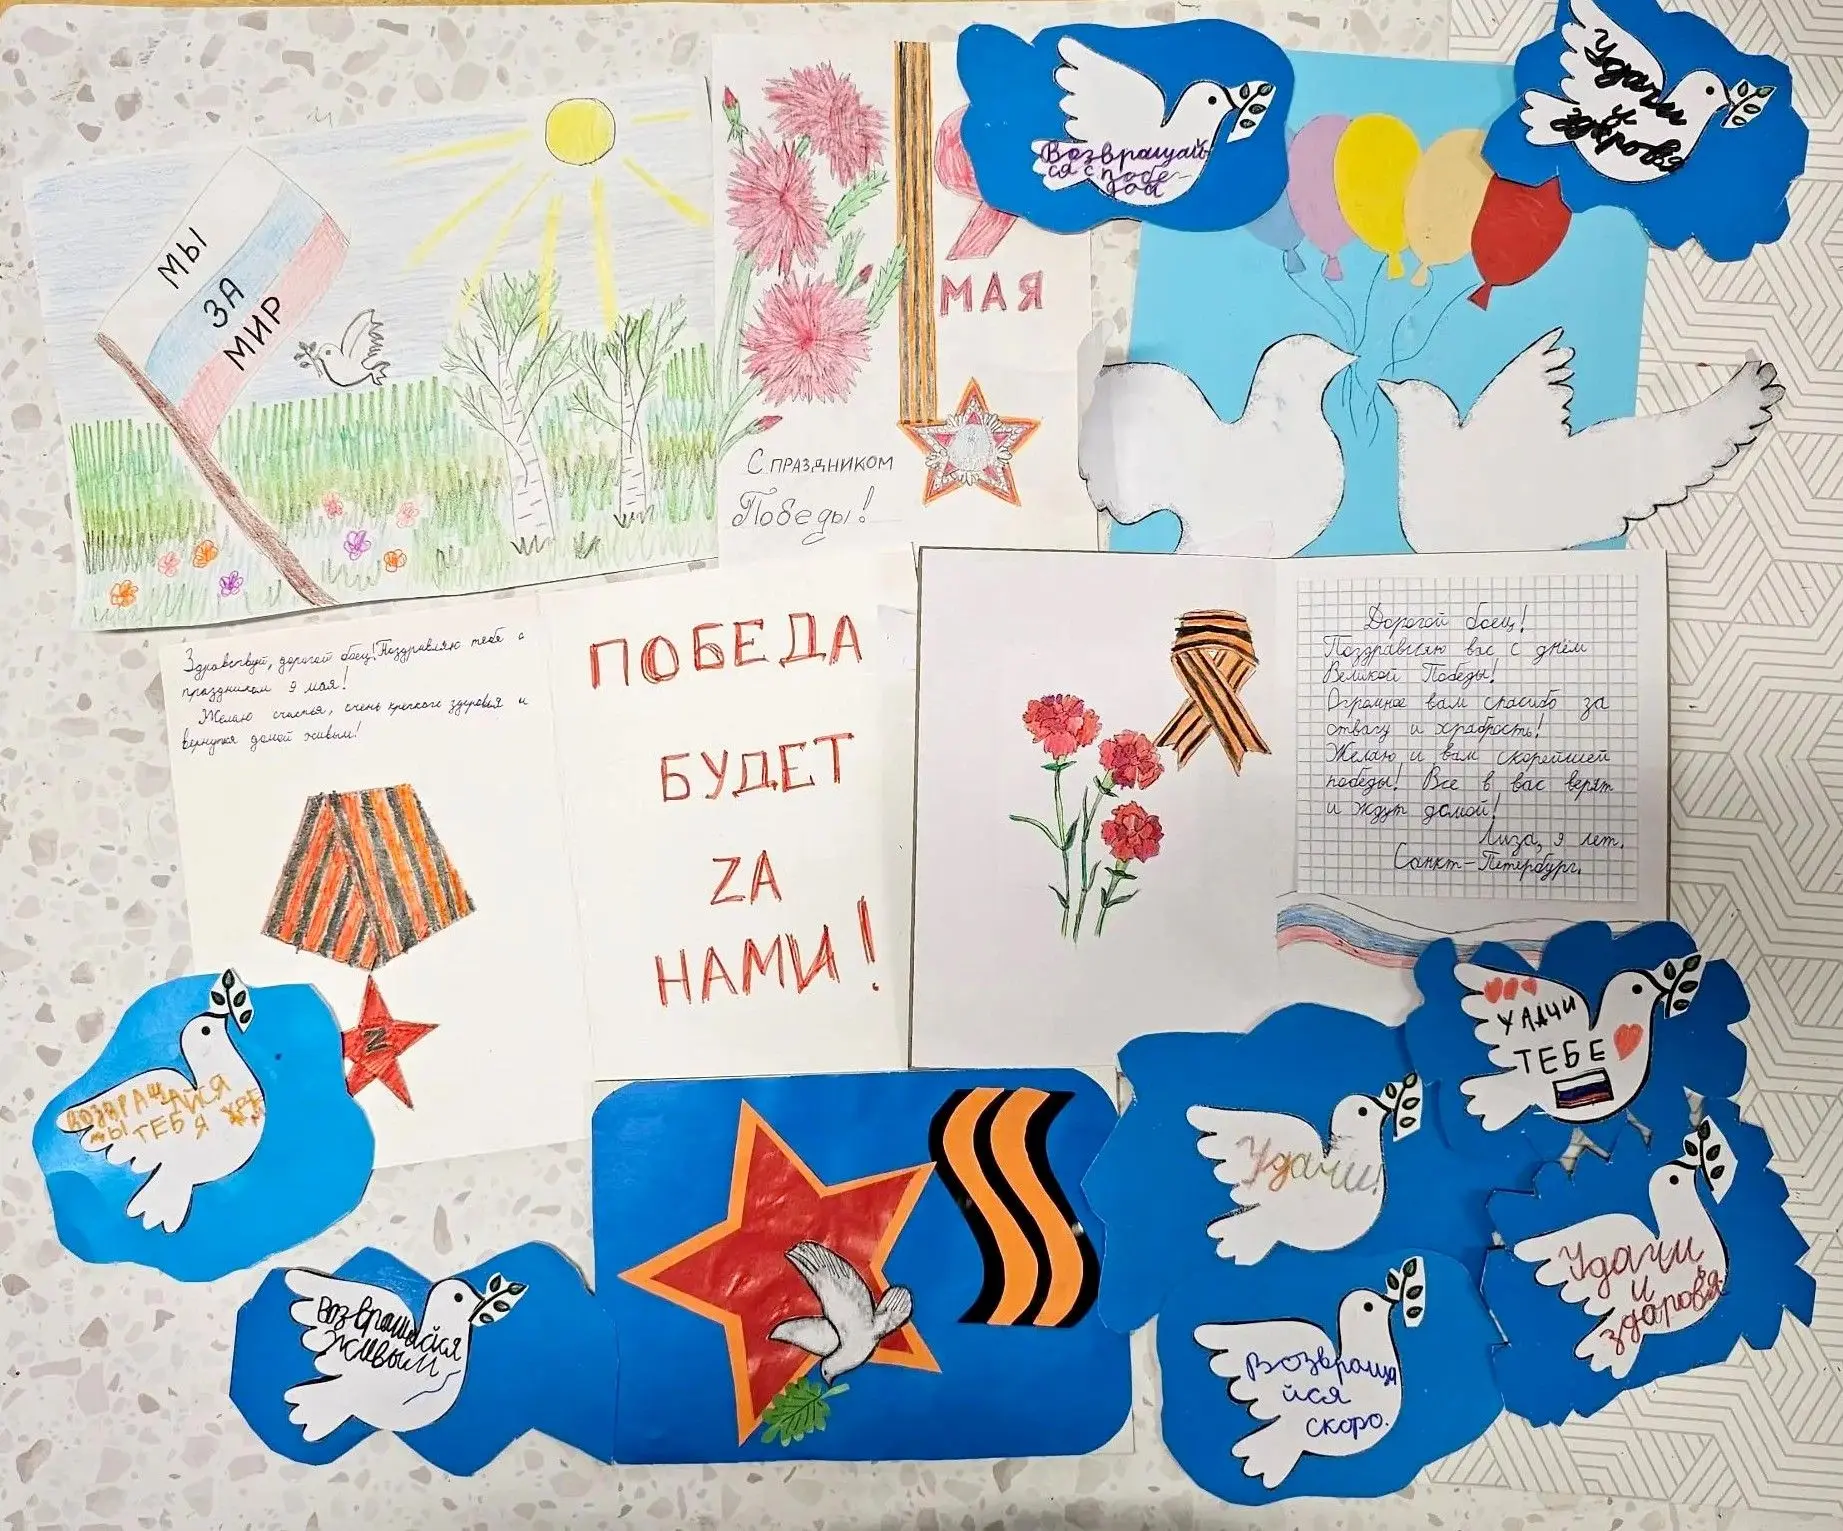 МЫ
ЗА
МИР
С ПРАЗДНИКОМ
Победы!
МАЯ
Возвращай
ся с побе-
дой
Удачи
и
здоровья
Здравствуй, дорогой боец! Поздравляю тебя с
праздником 9 мая!
Желаю счастья, очень крепкого здоровья и
вернутся домой живым!
ПОБЕДА
БУДЕТ
ZА
НАМИ!
Z
Дорогой боец!
Поздравляю вас с днём
Великой Победы!
Огромное вам спасибо за
отвагу и храбрость!
Желаю и вам скорейшей
победы! Все в вас верят
и ждут домой!
Лиза, 9 лет.
Санкт-Петербург.
ВОЗВРАЩАЙСЯ
МЫ ТЕБЯ
Возвращайся
живым
УДАЧИ
ТЕБЕ
Удачи!
Удачи,
и
здоровья.
Возвраща
йся
скоро.